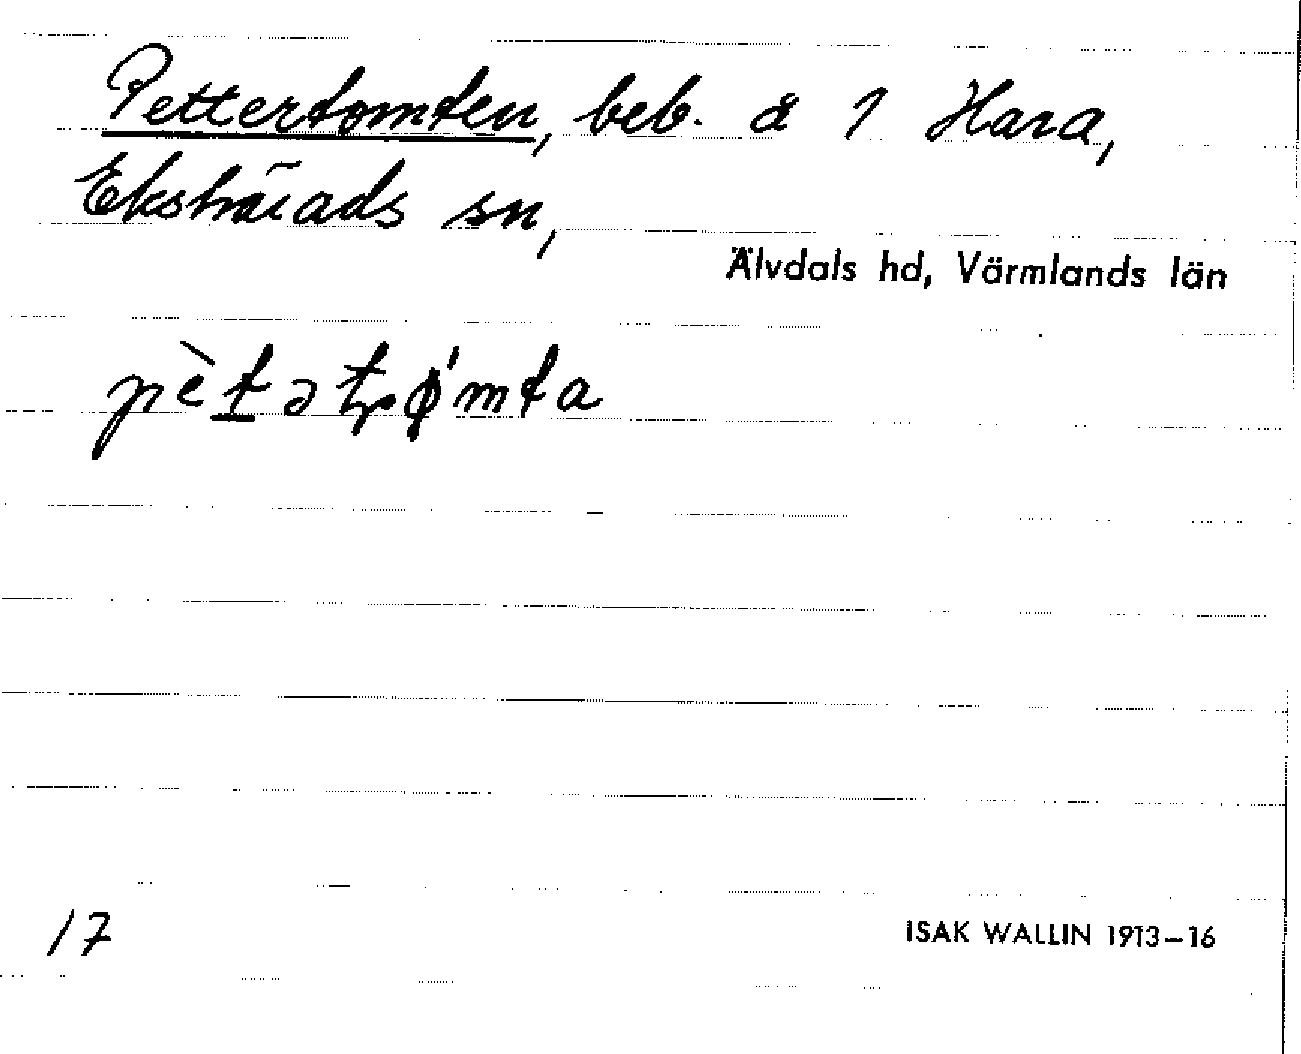 Pettertomten, beb. å 1 Hara,
Ekshärads sn,
Älvdals hd, Värmlands län
pètətǫ́mta
17
ISAK WALLIN 1913–16